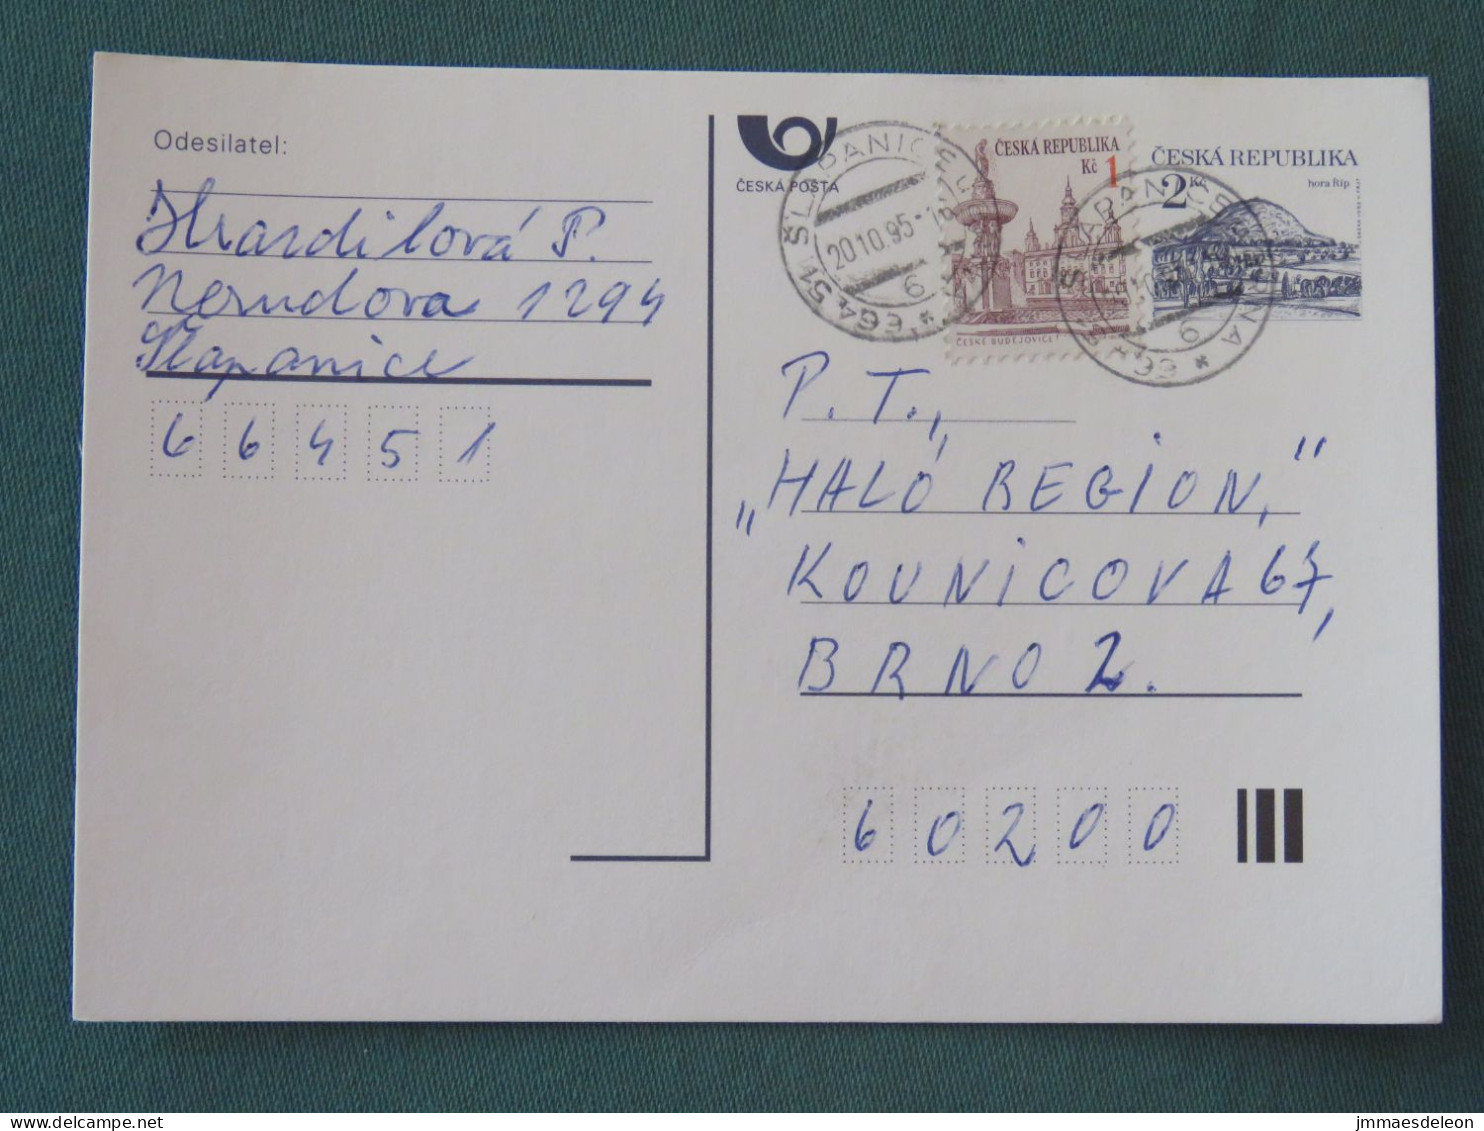 Odesilatel:
Hrardilová P.
Nerudova 1294
Šlapanice
6 6 4 5 1
ČESKÁ POŠTA
ČESKÁ REPUBLIKA
Kč 1
ČESKÉ BUDĚJOVICE
ČESKÁ REPUBLIKA
2 Kč
hora Říp
ŠLAPANICE U BRNA
20.10.95-16
6
664 51
P. T.,
„HALÓ REGION,"
KOUNICOVA 67,
BRNO 2.
6 0 2 0 0
jmmaesdeleon